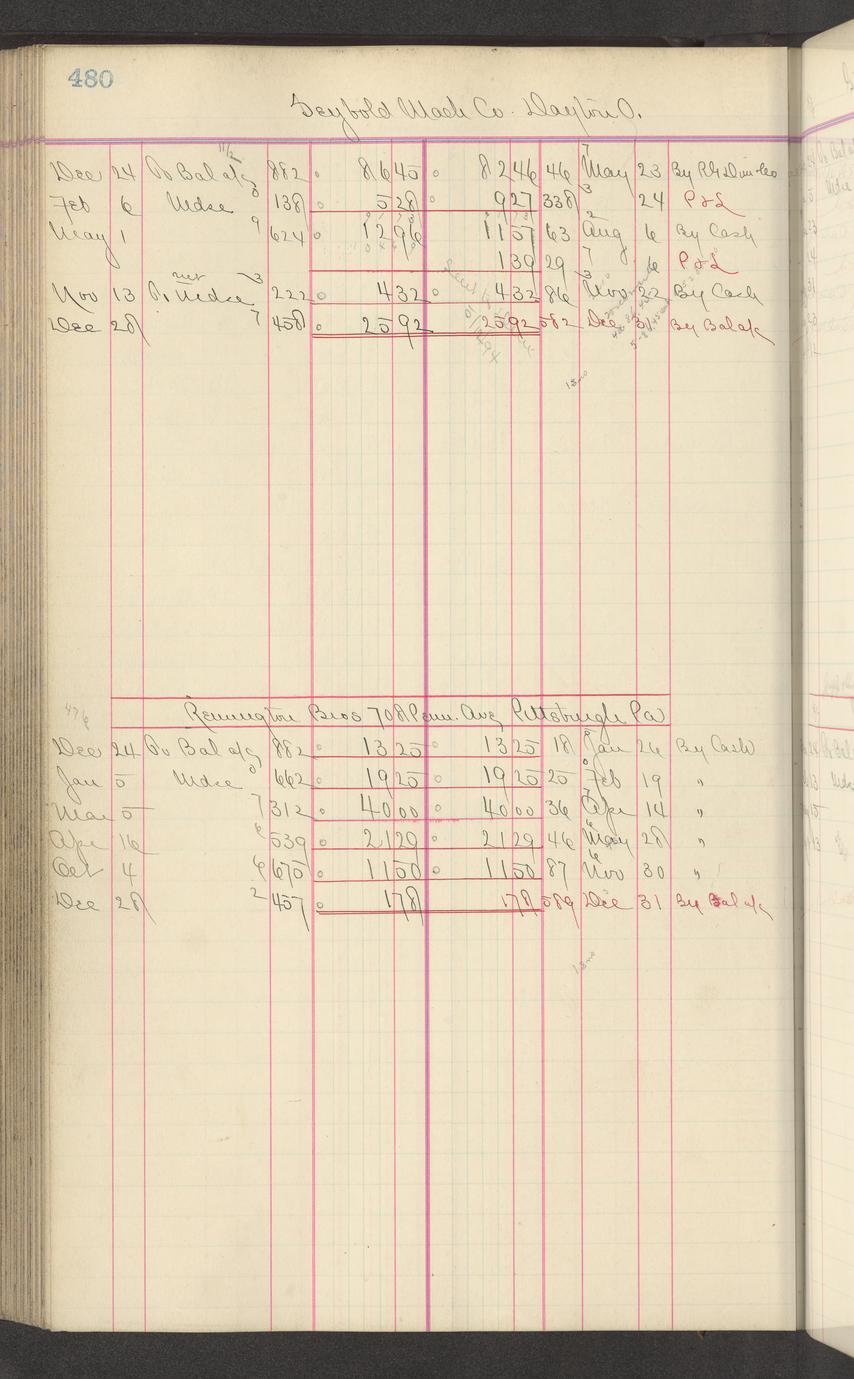 480
Seybold Mach Co. Dayton O.
11/2
Dec 24 To Bal a/c 882 86 45 82 46 46 May 23 By
Feb 6 Mdse 138 5 28 9 27 338 24 P & L
May 1 9 624 12 96 11 57 63 Aug 6 By Cash
1 39 29 6 P & L
net
Nov 13 To Mdse 3 222 4 32 4 32 86 Nov 22 By Cash
Dec 28 7 458 25 92 25 92 582 Dec 31 By Bal a/c
Remington Bros 708 Penn. Ave Pittsburgh Pa
Dec 24 To Bal a/c 882 13 25 13 25 18 Jan 26 By Cash
Jan 5 Mdse 662 19 25 19 25 25 Feb 19 "
Mar 5 7 312 40 00 40 00 36 Apr 14 "
Apr 16 6 539 21 29 21 29 46 May 28 "
Oct 4 6 675 11 50 11 50 87 Nov 30 "
Dec 28 2 457 1 78 1 78 589 Dec 31 By Bal a/c